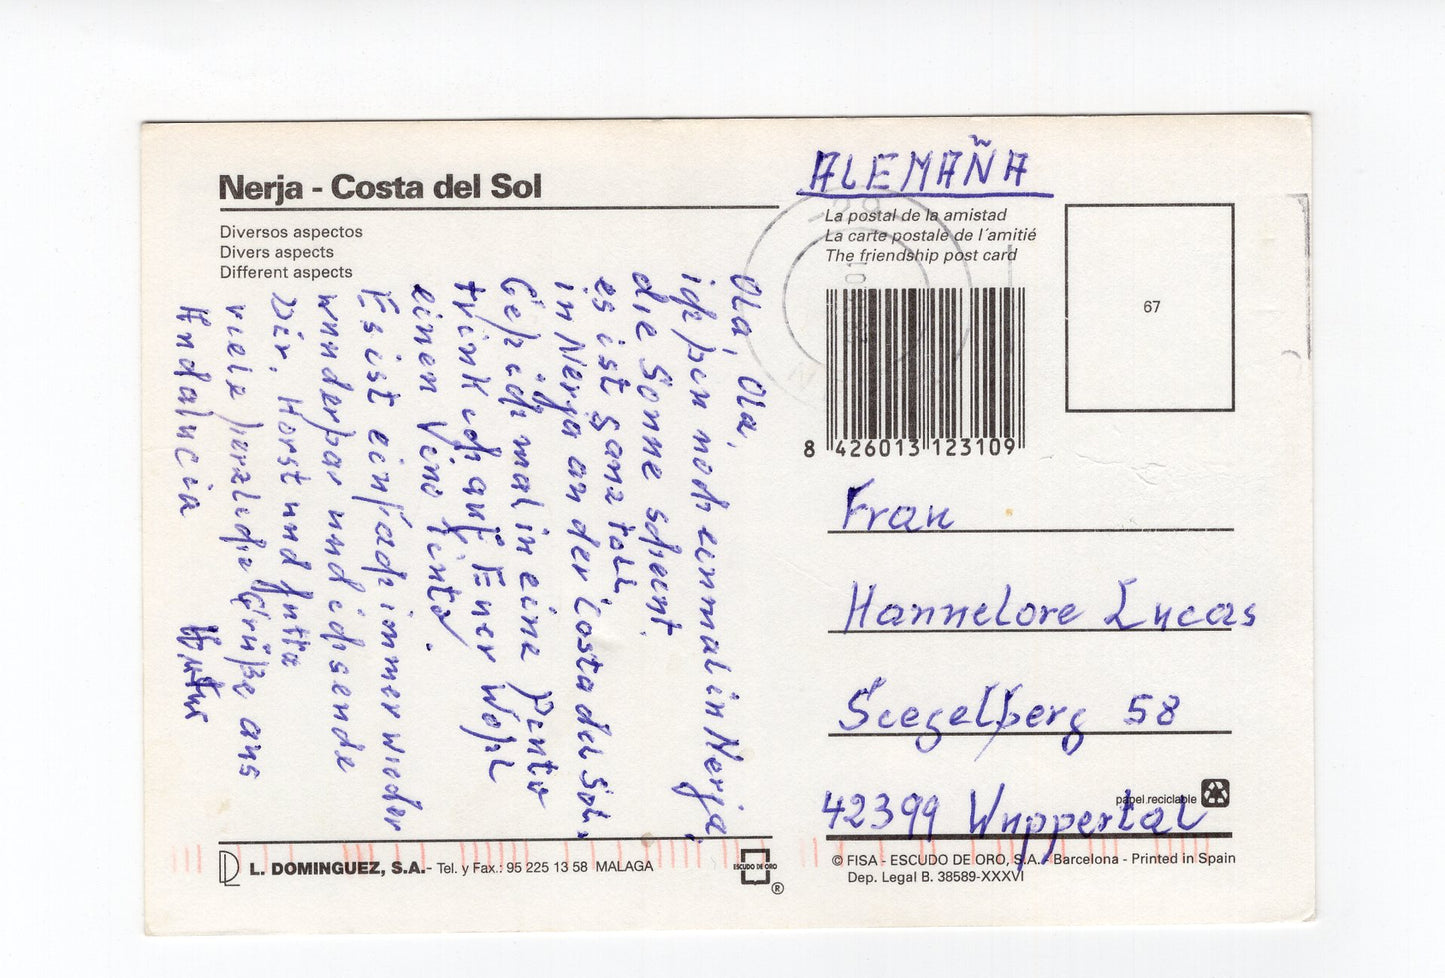 Nerja - Costa del Sol
Diversos aspectos
Divers aspects
Different aspects
Ola, Ola,
ich bin noch einmal in Nerja,
die Sonne scheint.
es ist ganz toll,
in Nerja an der Costa del Sol.
Geh ich mal in eine
trink ich auf Euer Wohl
einen Vino Tinto.
Es ist einfach immer wieder
wunderbar und ich sende
Dir, Horst und Jutta
viele herzliche Grüße aus
Andalucia
ALEMAÑA
La postal de la amistad
La carte postale de l'amitié
The friendship post card
8 426013 123109
67
Frau
Hannelore Lucas
Siegelberg 58
42399 Wuppertal
papel reciclable
L. DOMINGUEZ, S.A.- Tel. y Fax.: 95 225 13 58 MALAGA
ESCUDO DE ORO
®
© FISA - ESCUDO DE ORO, S.A. / Barcelona - Printed in Spain
Dep. Legal B. 38589-XXXVI